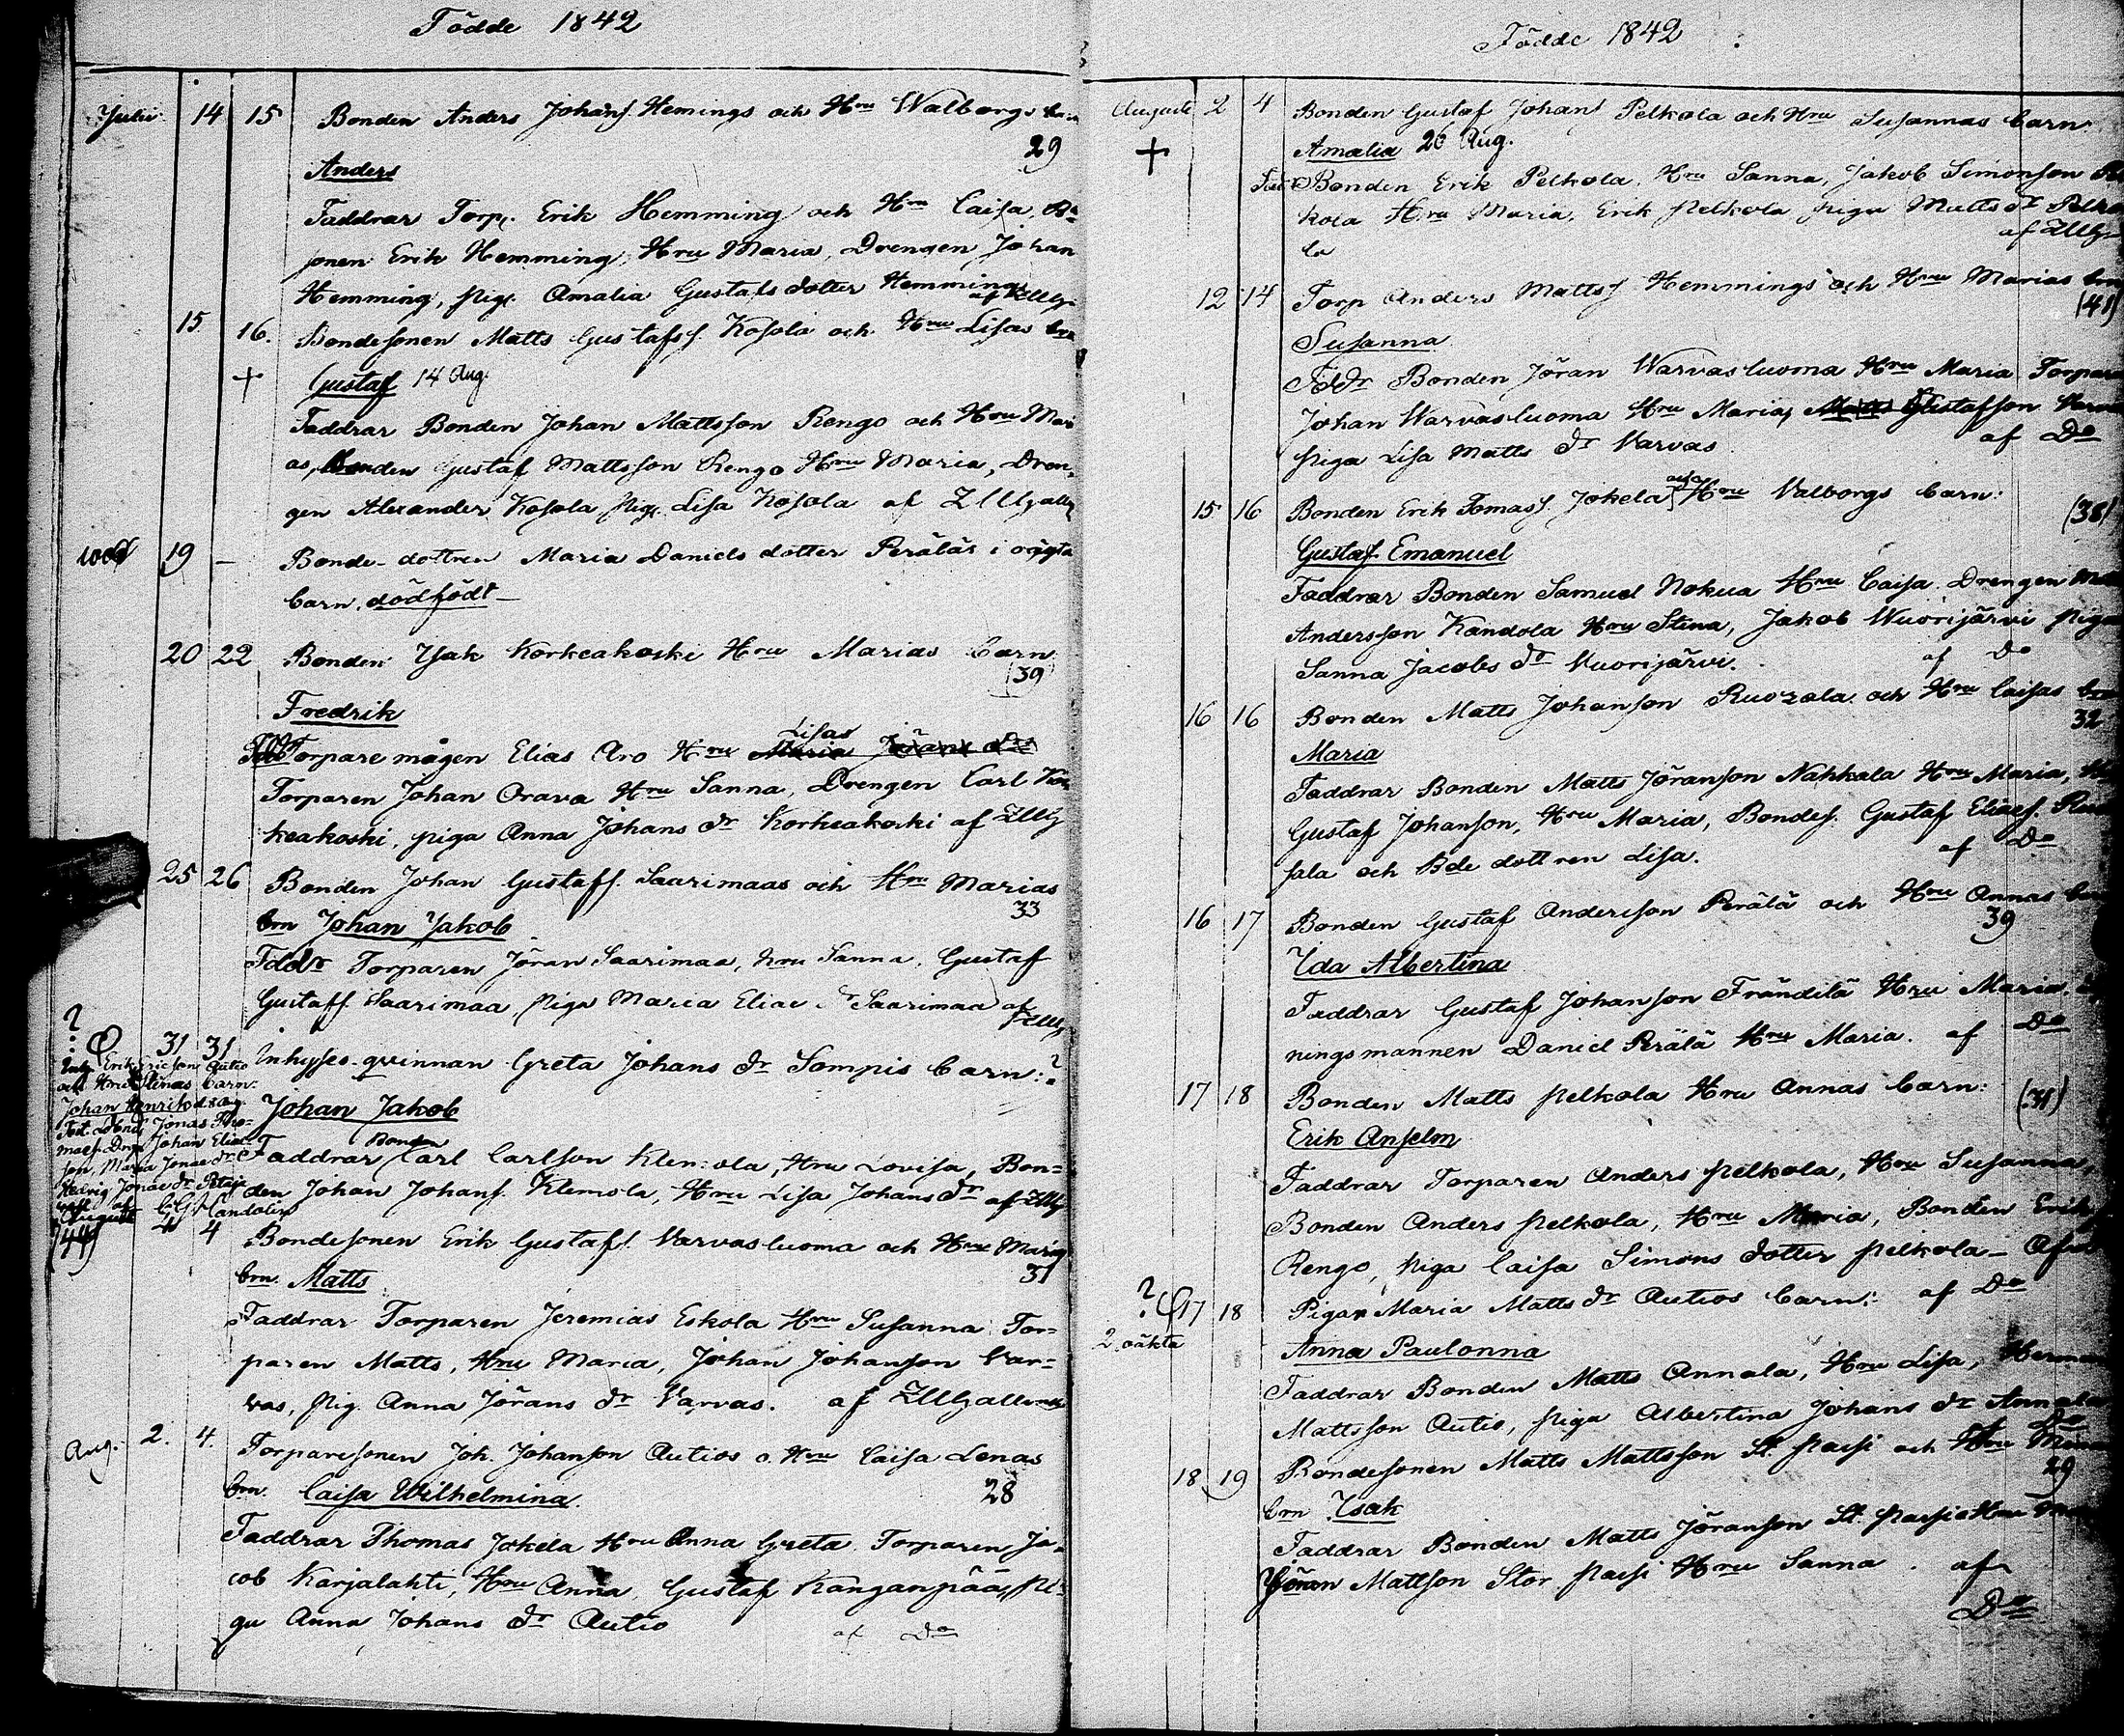 Födde 1842
Julii 14 15 Bonden Anders Johans. Hemings och Hru Walborgs
29
Anders
Faddrar Torp. Erik Hemming och Hru Caisa,
sonen Erik Hemming, Hru Maria, Drengen Johan
Hemming, pig. Amalia Gustafs dotter Hemming
15 16. Bondesonen Matts Gustafss. Kosola och Hru Lisas
+ Gustaf 14 Aug.
Faddrar Bonden Johan Mattsson Rengo och Hru Mari
as, Bonden Gustaf Mattsson Rengo Hru Maria, Dren-
gen Alexander Kosola pig. Lisa Kosola af
19 – Bonde-dottren Maria Daniels dotter Peräläs i oägta
barn. dödfödt
20 22 Bonden Isak Korkeakoski Hru Marias barn
(39)
Fredrik
Torpare mågen Elias Aro Hru Lisas
Torparen Johan Orava Hru Sanna, Drengen Carl Kor
keakoski, piga Anna Johans dr Korkeakoski af
25 26 Bonden Johan Gustafs. Saarimaas och Hru Marias
33
brn Johan Jakob
Fddr Torparen Jöran Saarimaa, hru Sanna, Gustaf
Gustafs. Saarimaa, piga Maria Eliae dr Saarimaa af
? 31 31 Inhyses-qvinnan Greta Johans dr Sompis barn:?
Erik Ericson Autio
och Hru Stinas barn:
Johan Henrik d. 8 Aug.
Jonas Tho-
maes. Johan Elias-
son, Maria Jonae dr
Hedvig Jonae dr
Johan Jakob
Bonden
Faddrar Carl Carlson Klemola, Hru Lovisa, Bon=
den Johan Johans. Klemola, Hru Lisa Johans dr af
August 4 4 Bondesonen Erik Gustafs. Varvasluoma och Hru Marias
(44)
31
brn. Matts
Faddrar Torparen Jeremias Eskola Hru Susanna Tor=
paren Matts, Hru Maria, Johan Johanson Var=
vas, pig. Anna Jörans dr Varvas. af
Aug. 2. 4. Torparesonen Joh. Johanson Autios o. Hru Caisa Lenas
brn. Caisa Wilhelmina. 28
Faddrar Thomas Jokela Hru Anna Greta. Torparen Ja-
cob Karjalahti, Hru Anna, Gustaf Kanganpää, Pi-
ga Anna Johans dr Autio
af Do
Födde 1842
Augusti 2 4 Bonden Gustaf Johans Pelkola och Hru Susannas barn
+ Amalia 26 Aug.
Bonden Erik Pelkola, Hru Sanna, Jakob Simonson
kola Hru Maria, Erik Pelkola piga Matts dr
la
12 14 Torp Anders Mattss Hemmings och Hru Marias brn
(41)
Susanna
Fddr Bonden Jöran Warvasluoma Hru Maria Torparen
Johan Warvasluoma Hru Maria, Gustafson
piga Lisa Matts dr Varvas af Do
15 16 Bonden Erik Tomass. Jokela och Hru Valborgs barn:
(38)
Gustaf Emanuel
Faddrar Bonden Samuel Nokua Hru Caisa. Drengen
Andersson Kandola Hru Stina, Jakob Wuorijärvi piga
Sanna Jacobs dr Vuorijärvi. af Do
16 16 Bonden Matts Johanson Ruozala och Hru Caisas brn
32
Maria
Faddrar Bonden Matts Jöranson Nahkala Hru Maria,
Gustaf Johanson, Hru Maria, Bondes. Gustaf Eliaes.
sala och Bde dottren Lisa. af Do
16 17 Bonden Gustaf Anderson Perälä och Hru Annas brn
39
Ida Albertina
Faddrar Gustaf Johanson Fränditä Hru Maria.
ningsmannen Daniel Perälä Hru Maria. af Do
17 18 Bonden Matts Pelkola Hru Annas barn: (31)
Erik Anselm
Faddrar Torparen Anders Pelkola, Hru Susanna,
Bonden Anders Pelkola, Hru Maria, Bonden Erik
Rengo, piga Caisa Simons dotter Pelkola –
? 17 18 Pigan Maria Matts dr Autios barn: af Do
2 oäkta
Anna Paulonna
Faddrar Bonden Matts Annala, Hru Lisa,
Mattsson Autio, piga Albertina Johans dr Annala
Do
18 19 Bondesonen Matts Mattsson St. Passi och Hru
29
brn Isak
Faddrar Bonden Matts Jöranson St. Passi Hru
Jöran Mattson Stor Passi Hru Sanna. af
Do